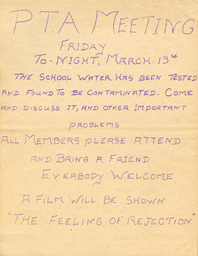 PTA MEETING
FRIDAY
TO-NIGHT, MARCH 13th
THE SCHOOL WATER HAS BEEN TESTED
AND FOUND TO BE CONTAMINATED. COME
AND DISCUSS IT, AND OTHER IMPORTANT
PROBLEMS
ALL MEMBERS PLEASE ATTEND
AND BRING A FRIEND
EVERBODY WELCOME
A FILM WILL BE SHOWN
"THE FEELING OF REJECTION"